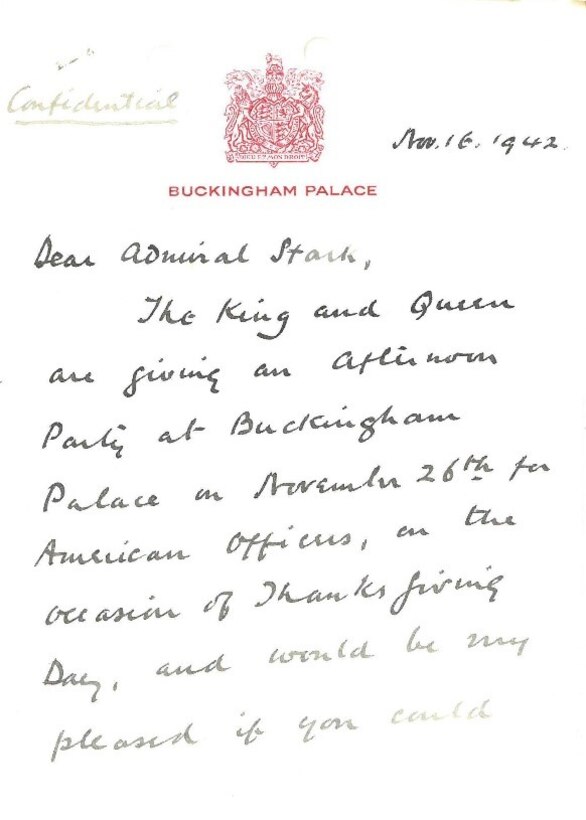 Confidential
DIEU ET MON DROIT
Nov. 16. 1942.
BUCKINGHAM PALACE
Dear Admiral Stark,
The King and Queen
are giving an Afternoon
Party at Buckingham
Palace on November 26th for
American Officers, on the
occasion of Thanksgiving
Day, and would be
pleased if you could